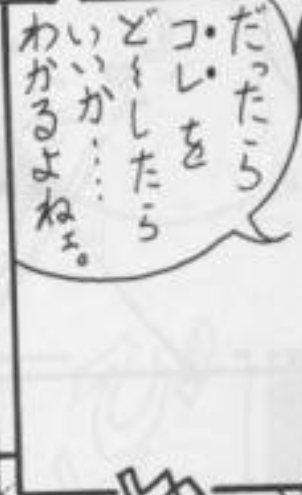 だったら
コレを
ど〜したら
いいか……
わかるよねェ。